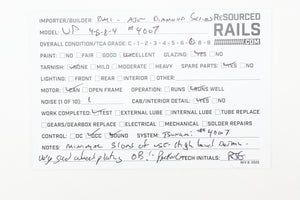 IMPORTER/BUILDER: BLI - ASW Diamond Series
ReSOURCED
MODEL: UP 4-8-8-4 #4007
RAILS
.COM
OVERALL CONDITION/TCA GRADE: C-1 2 3 4 5 6 8 9
PAINT: NO FAIR GOOD EXCELLENT YES
TARNISH: NONE MILD MODERATE HEAVY MISSING PARTS: NONE YES
LIGHTING: FRONT REAR INTERIOR OTHER SPARE PARTS? YES
MOTOR: CAN OPEN FRAME OPERATION: RUNS RUNS WELL
NOISE (1 OF 10): 1 CAB/INTERIOR DETAIL: YES NO
WORK COMPLETED: TEST EXTERNAL LUBE INTERNAL LUBE TUBE REPLACE
GEARS/GEARBOX REPLACE ELECTRICAL MECHANICAL SOLDER REPAIRS
CONTROL: DC DCC SOUND SYSTEM: Tsunami #4007
NOTES: minimal signs of use. High level Detail
wheel plating OB! TECH INITIALS: